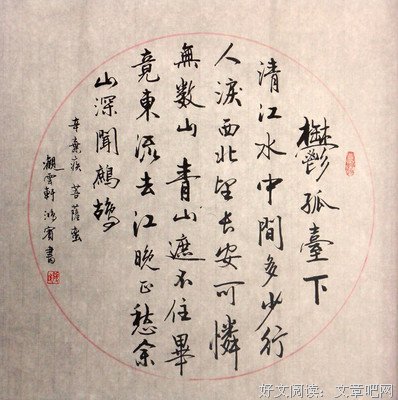 鬱孤臺下
清江水中間多少行
人淚西北望長安可憐
無數山青山遮不住畢
竟東流去江晚正愁余
山深聞鷓鴣
辛棄疾 菩薩蠻
觀雲軒 鴻賓書
好文阅读：文章吧网